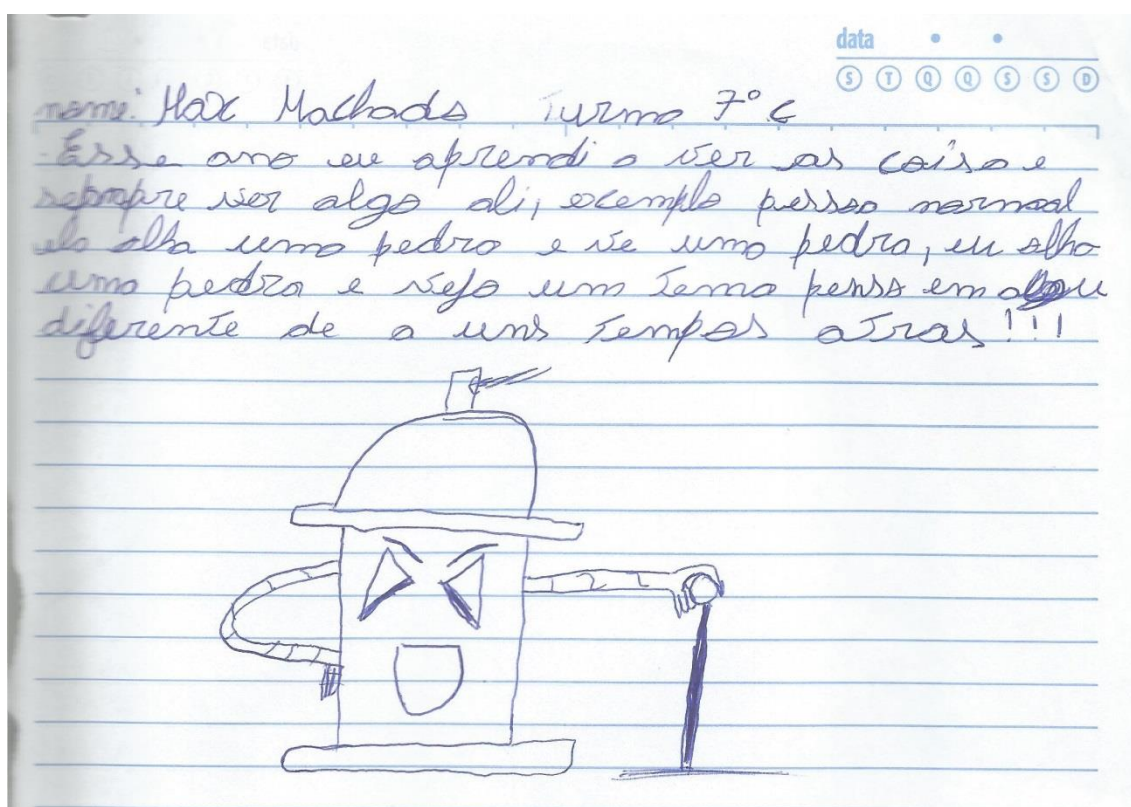 data • •
S T Q Q S S D
nome: Max Machado Turma 7º C
Esse ano eu aprendi a ver as coisa e
sempre ver algo ali, exemplo pessoa normal
ela olha uma pedra e ve uma pedra, eu olho
uma pedra e vejo um tema penso em
diferente de a uns tempos atras!!!